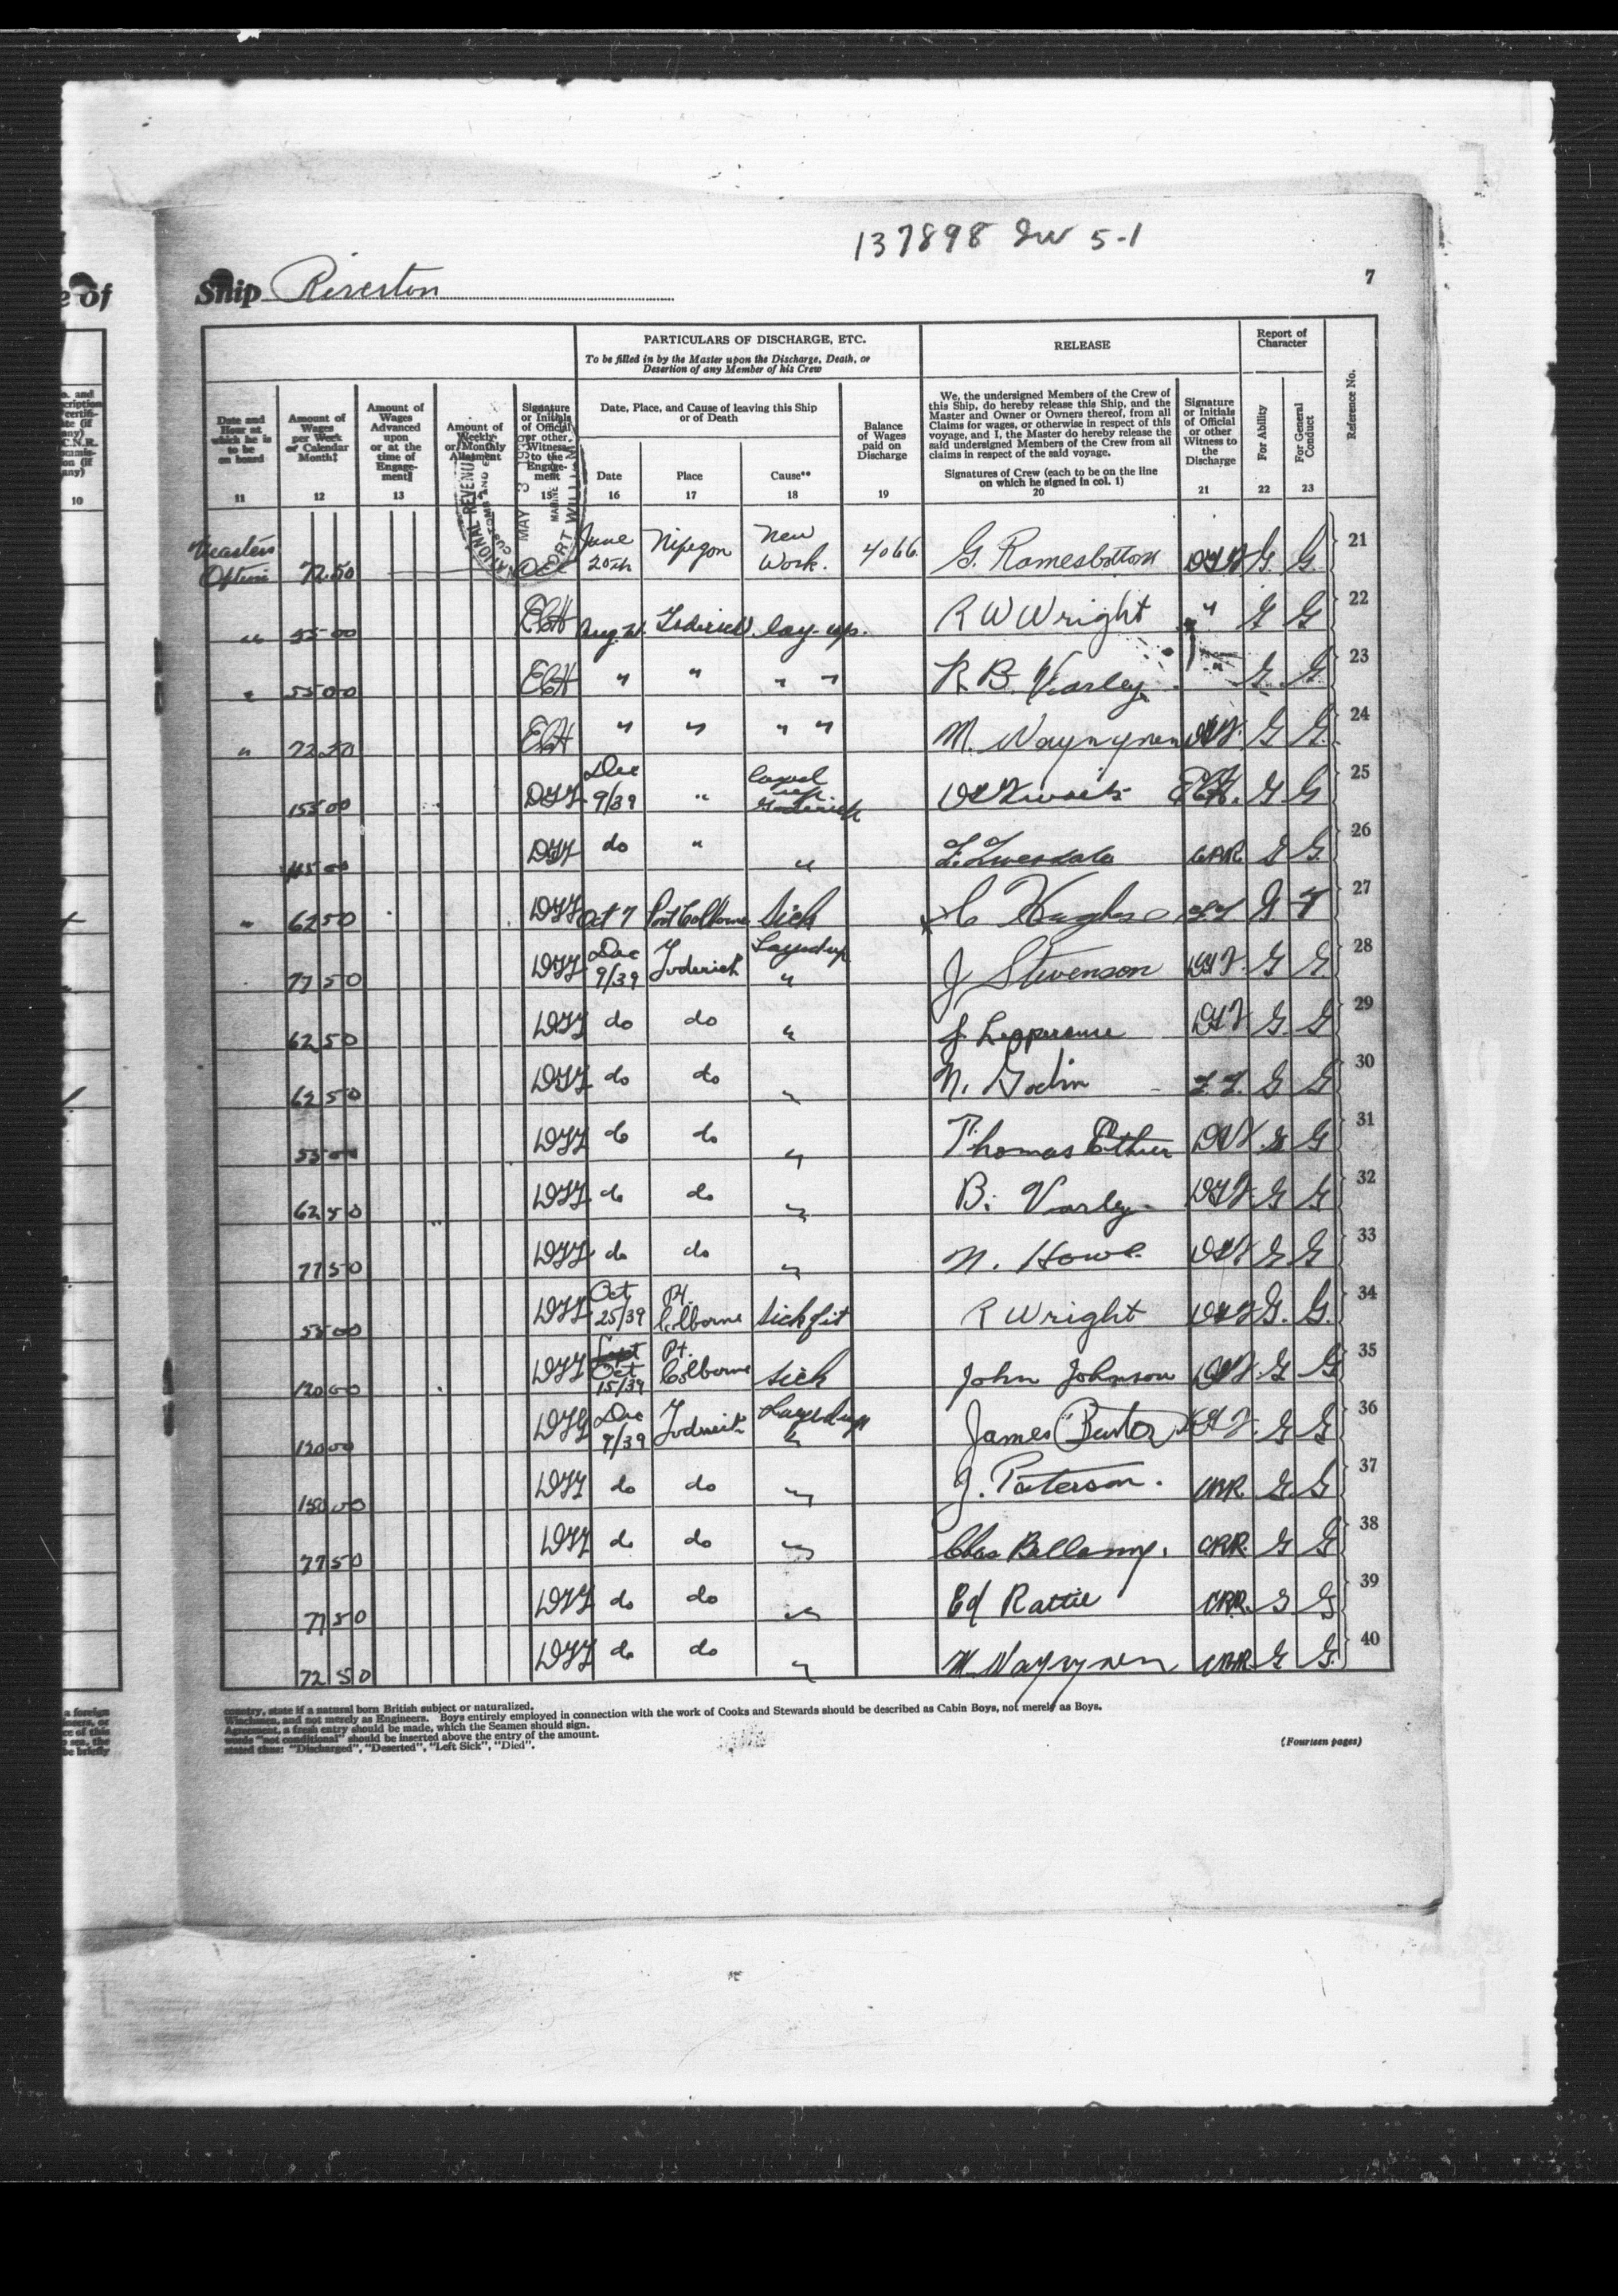 137898 SW 5-1
7
e of
Ship Riverton
PARTICULARS OF DISCHARGE, ETC.
To be filled in by the Master upon the Discharge, Death, or
Desertion of any Member of his Crew
RELEASE
Report of
Character
Reference No.
Date and
Hour at
which he is
to be
on board
Amount of
Wages
per Week
or Calendar
Month‡
Amount of
Wages
Advanced
upon
or at the
time of
Engage-
ment‖
Amount of
Weekly
or Monthly
Allotment
Signature
or Initials
of Official
or other
Witness
to the
Engage-
ment
Date, Place, and Cause of leaving this Ship
or of Death
Date
Place
Cause**
Balance
of Wages
paid on
Discharge
We, the undersigned Members of the Crew of
this Ship, do hereby release this Ship, and the
Master and Owner or Owners thereof, from all
Claims for wages, or otherwise in respect of this
voyage, and I, the Master do hereby release the
said undersigned Members of the Crew from all
claims in respect of the said voyage.
Signatures of Crew (each to be on the line
on which he signed in col. 1)
Signature
or Initials
of Official
or other
Witness to
the
Discharge
For Ability
For General
Conduct
10 11 12 13 14 15 16 17 18 19 20 21 22 23
MAY 3
FORT WILLIAM
72.50 June 20th Nipegon New Work. 4066 G. Ramesbottom G. G. 21
" 55 00 ECH Aug. 21. Goderich lay-up. R W Wright " G G 22
" 55 00 ECH " " " " R. B. Varley " G G 23
" 72.50 ECH " " " " M. Waynynen G G. 24
155 00 Dec 9/39 " layed up Goderich ECH. G G 25
115 00 do " " CRR. G G. 26
" 62 50 Oct 7 Port Colborne Sick C Hughes G 27
77 50 Dec 9/39 Goderich Layed up " J Stevenson G G 28
62 50 do do " J. Lepperance G. G 29
62 50 do do " N. Godin G G 30
55 00 do do " Thomas Ethier G G 31
62 50 do do " B. Varley G G 32
77 50 do do " N. Howe. G G 33
55 00 Oct 25/39 Pt. Colborne Sick fit R Wright G. G. 34
120 00 Sept Oct 15/39 Pt. Colborne Sick John Johnson G G 35
120 00 Dec 9/39 Goderich Layed up " James G G 36
150 00 do do " J. Paterson. CRR. G G 37
77 50 do do " Chas Bellamy. CRR. G G 38
77 50 do do " Ed Rattie CRR. G G 39
72 50 do do " M Waynynen CRR. G G. 40
country, state if a natural born British subject or naturalized.
Winchmen, and not merely as Engineers. Boys entirely employed in connection with the work of Cooks and Stewards should be described as Cabin Boys, not merely as Boys.
Agreement, a fresh entry should be made, which the Seamen should sign.
words "not conditional" should be inserted above the entry of the amount.
stated thus: "Discharged", "Deserted", "Left Sick", "Died".
(Fourteen pages)